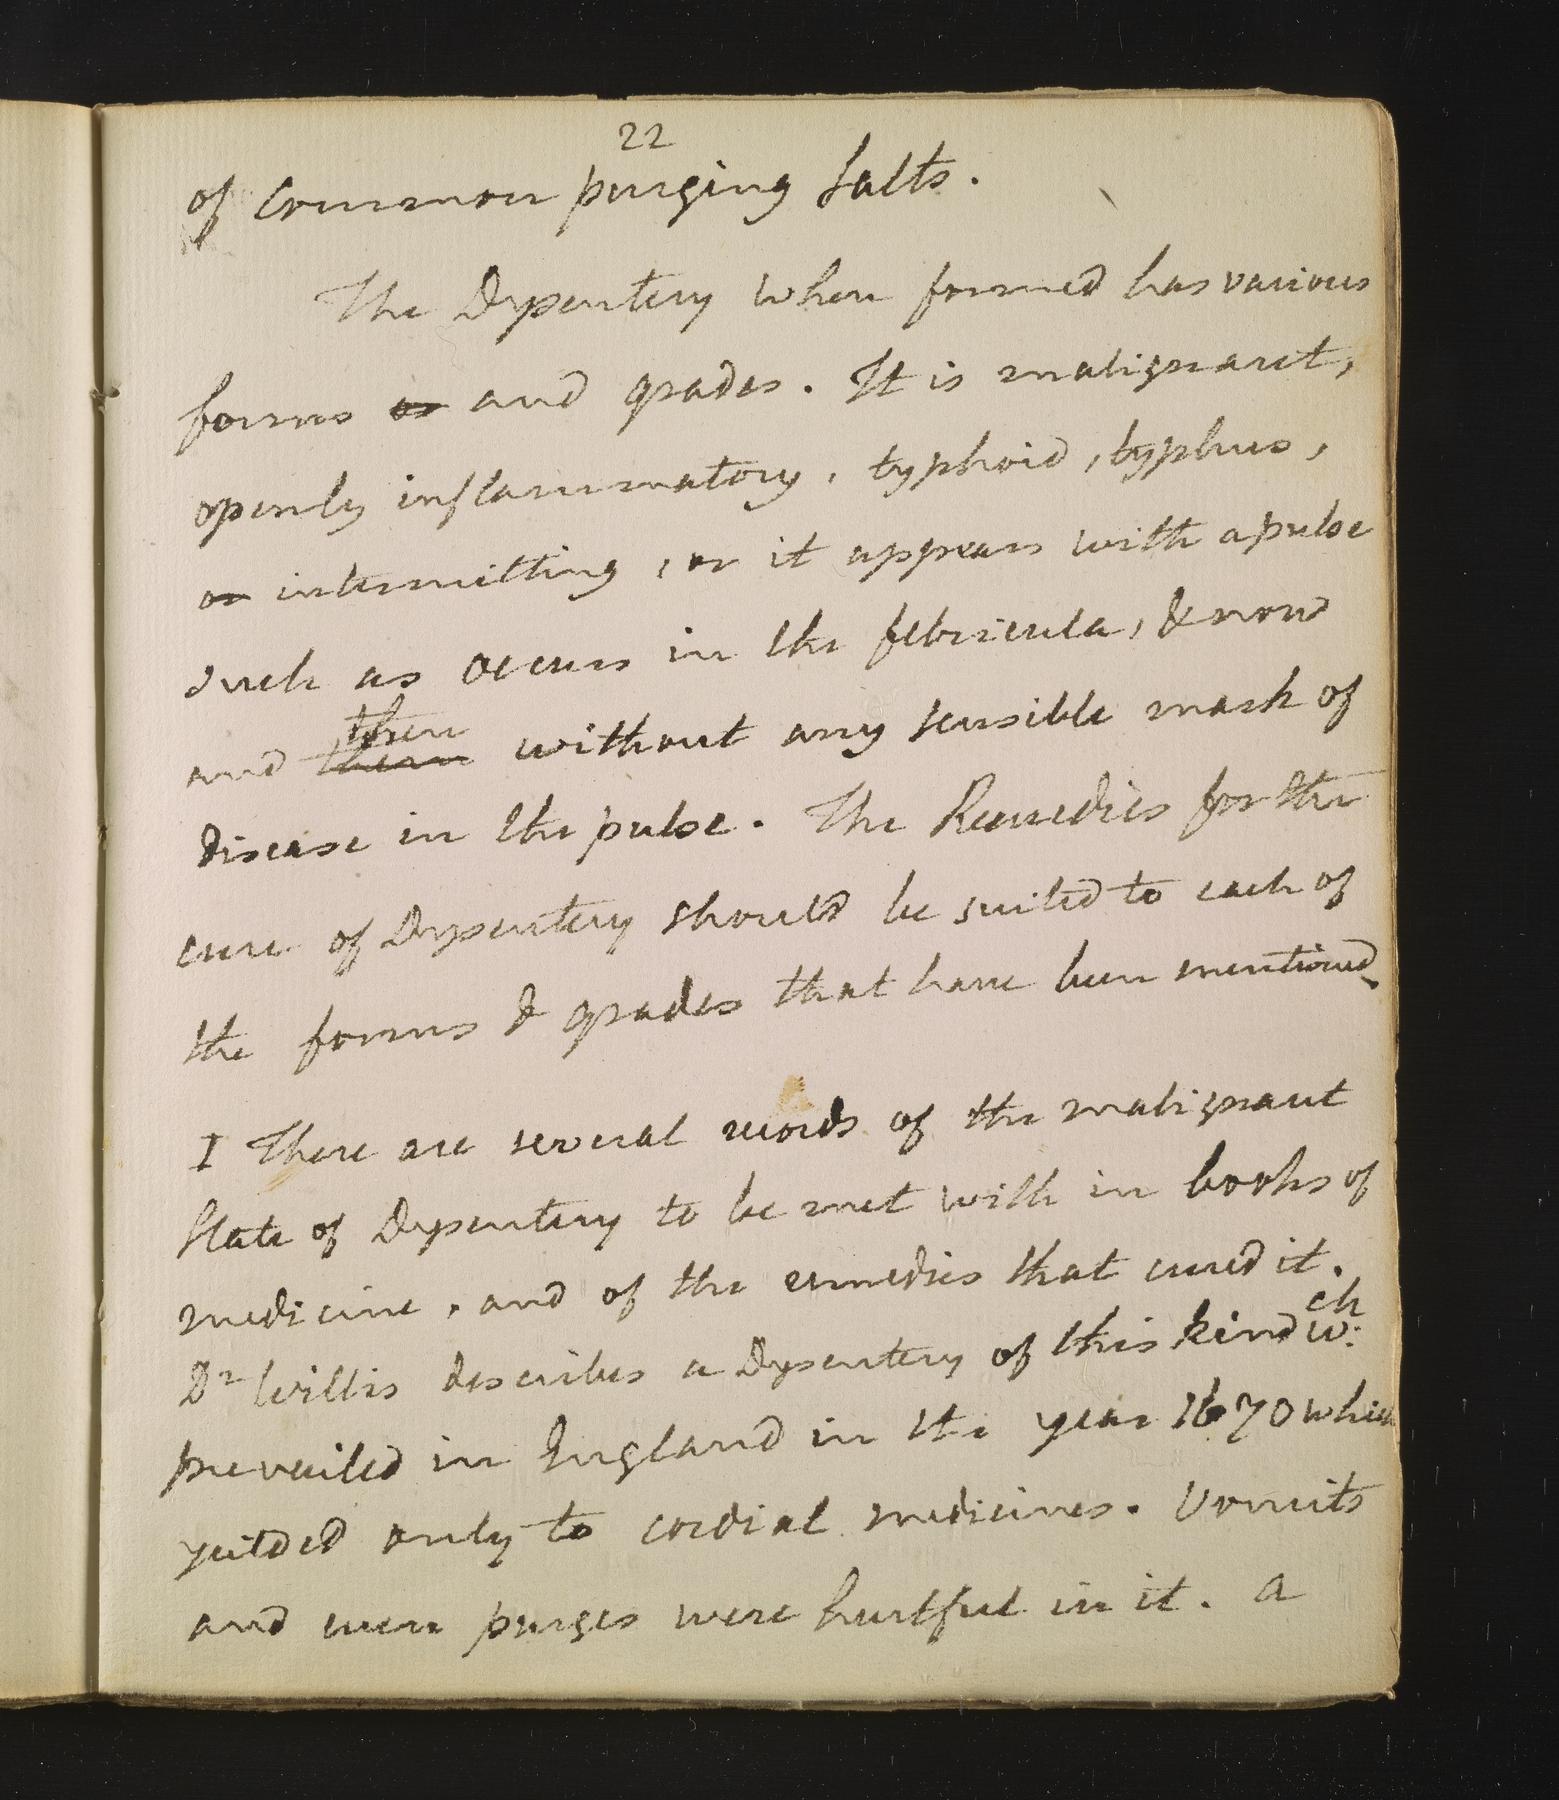 22
of common purging salts.
The Dysentery when formed has various
forms or and grades. It is malignant,
openly inflammatory, typhoid, typhus,
or intermitting, or it appears with a pulse
such as occurs in the febricula, & now
then
and then without any sensible mark of
disease in the pulse. The Remedies for the
cure of Dysentery should be suited to each of
the forms & grades that have been mentioned.
I There are several records of the malignant
state of Dysentery to be met with in books of
medicine, and of the remedies that cured it.
Dr Willis describes a Dysentery of this kind wch
prevailed in England in the year 1670 which
yeilded only to cordial medicines. Vomits
and even purges were hurtful in it. A